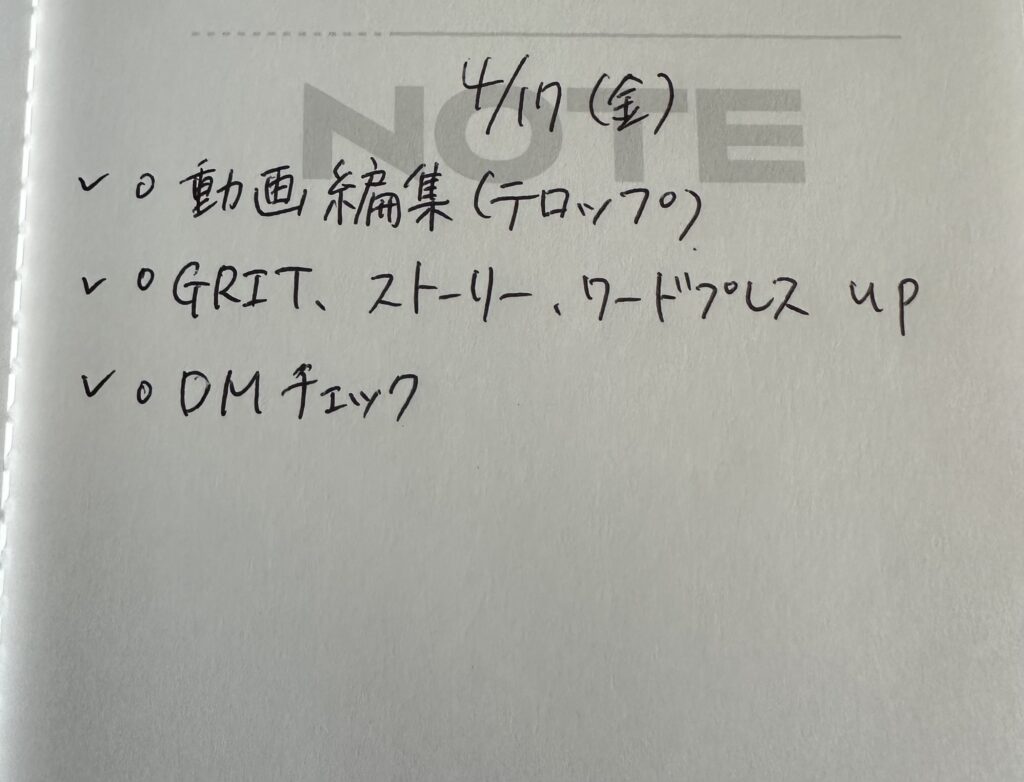 NOTE
4/17 (金)
✓ ○ 動画編集 (テロップ)
✓ ○ GRIT、ストーリー、ワードプレス up
✓ ○ DMチェック